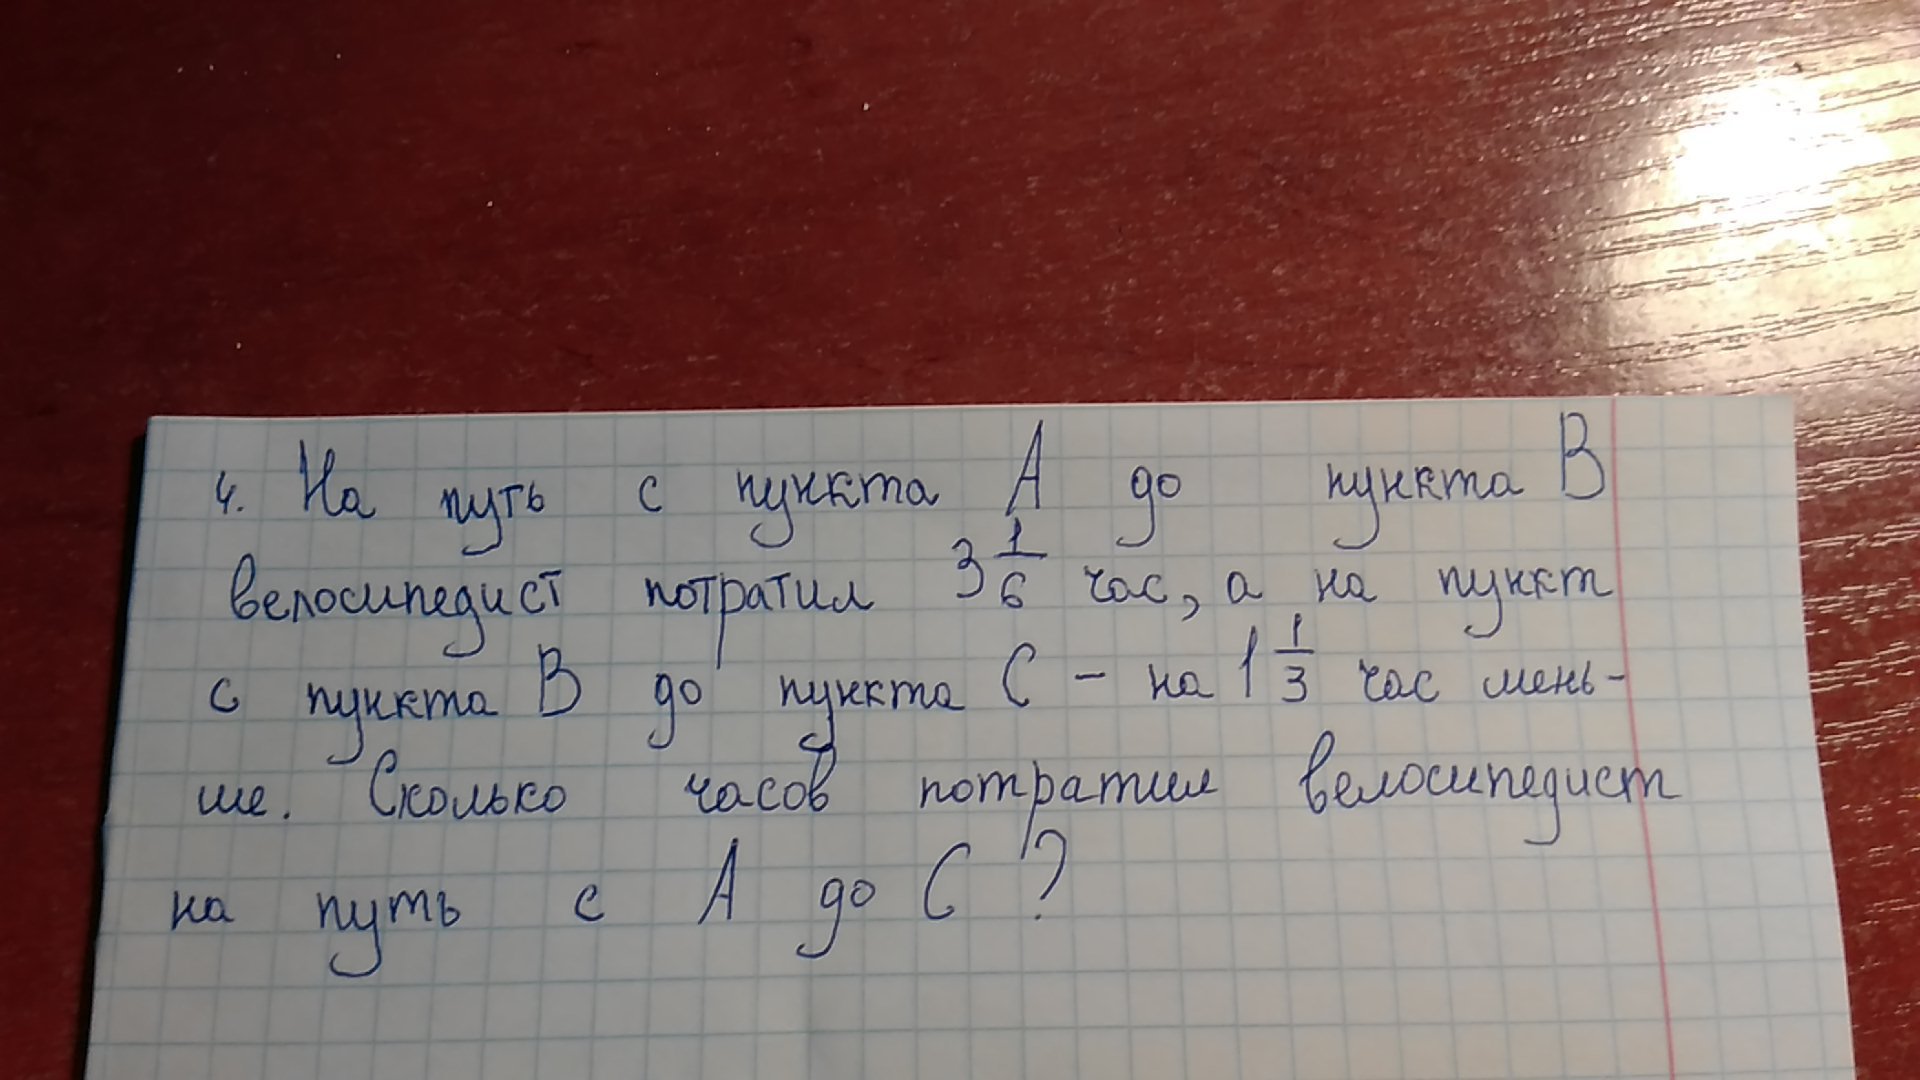 4. На путь с пункта А до пункта В
велосипедист потратил 3 1/6 час, а на пункт
с пункта В до пункта С - на 1 1/3 час мень-
ше. Сколько часов потратил велосипедист
на путь с А до С ?